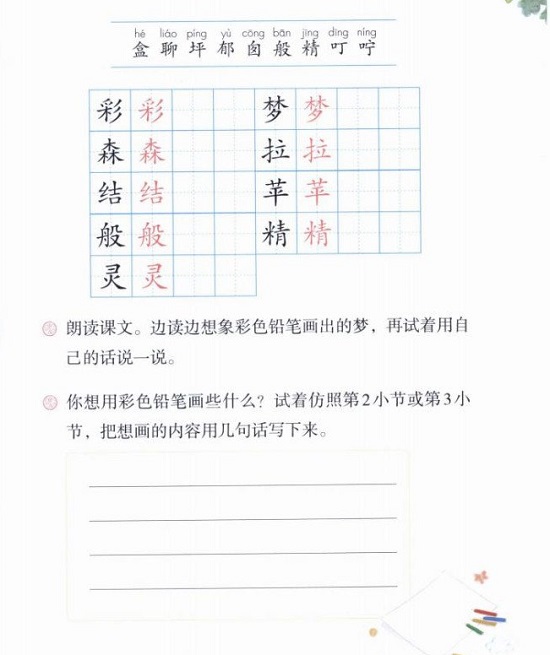 hé liáo píng yù cōng bān jīng dīng níng
盒 聊 坪 郁 囱 般 精 叮 咛
彩 彩 梦 梦
森 森 拉 拉
结 结 苹 苹
般 般 精 精
灵 灵
朗读课文。边读边想象彩色铅笔画出的梦，再试着用自
己的话说一说。
你想用彩色铅笔画些什么？试着仿照第2小节或第3小
节，把想画的内容用几句话写下来。